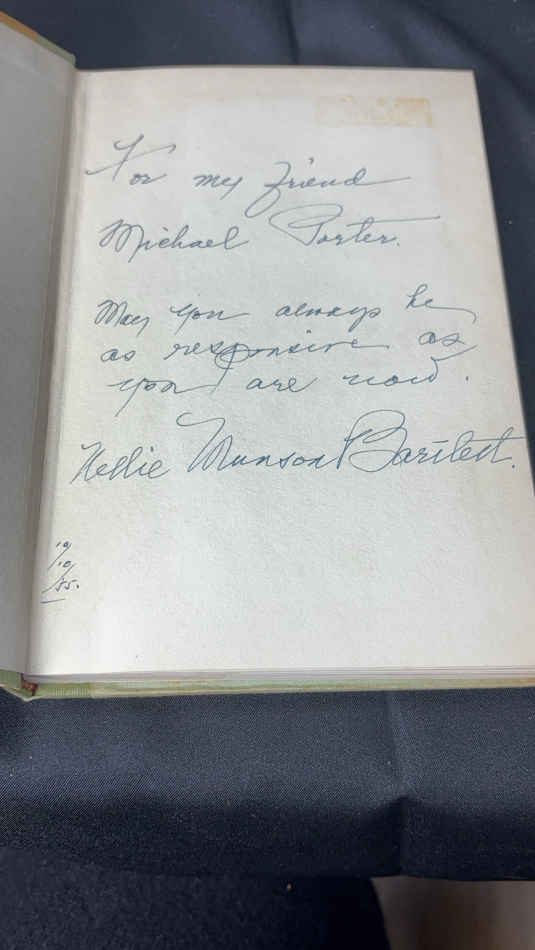 For my friend
Michael Porter.
May you always be
as responsive as
you are now.
Nellie Munson Bartlett.
10/
10/
55.